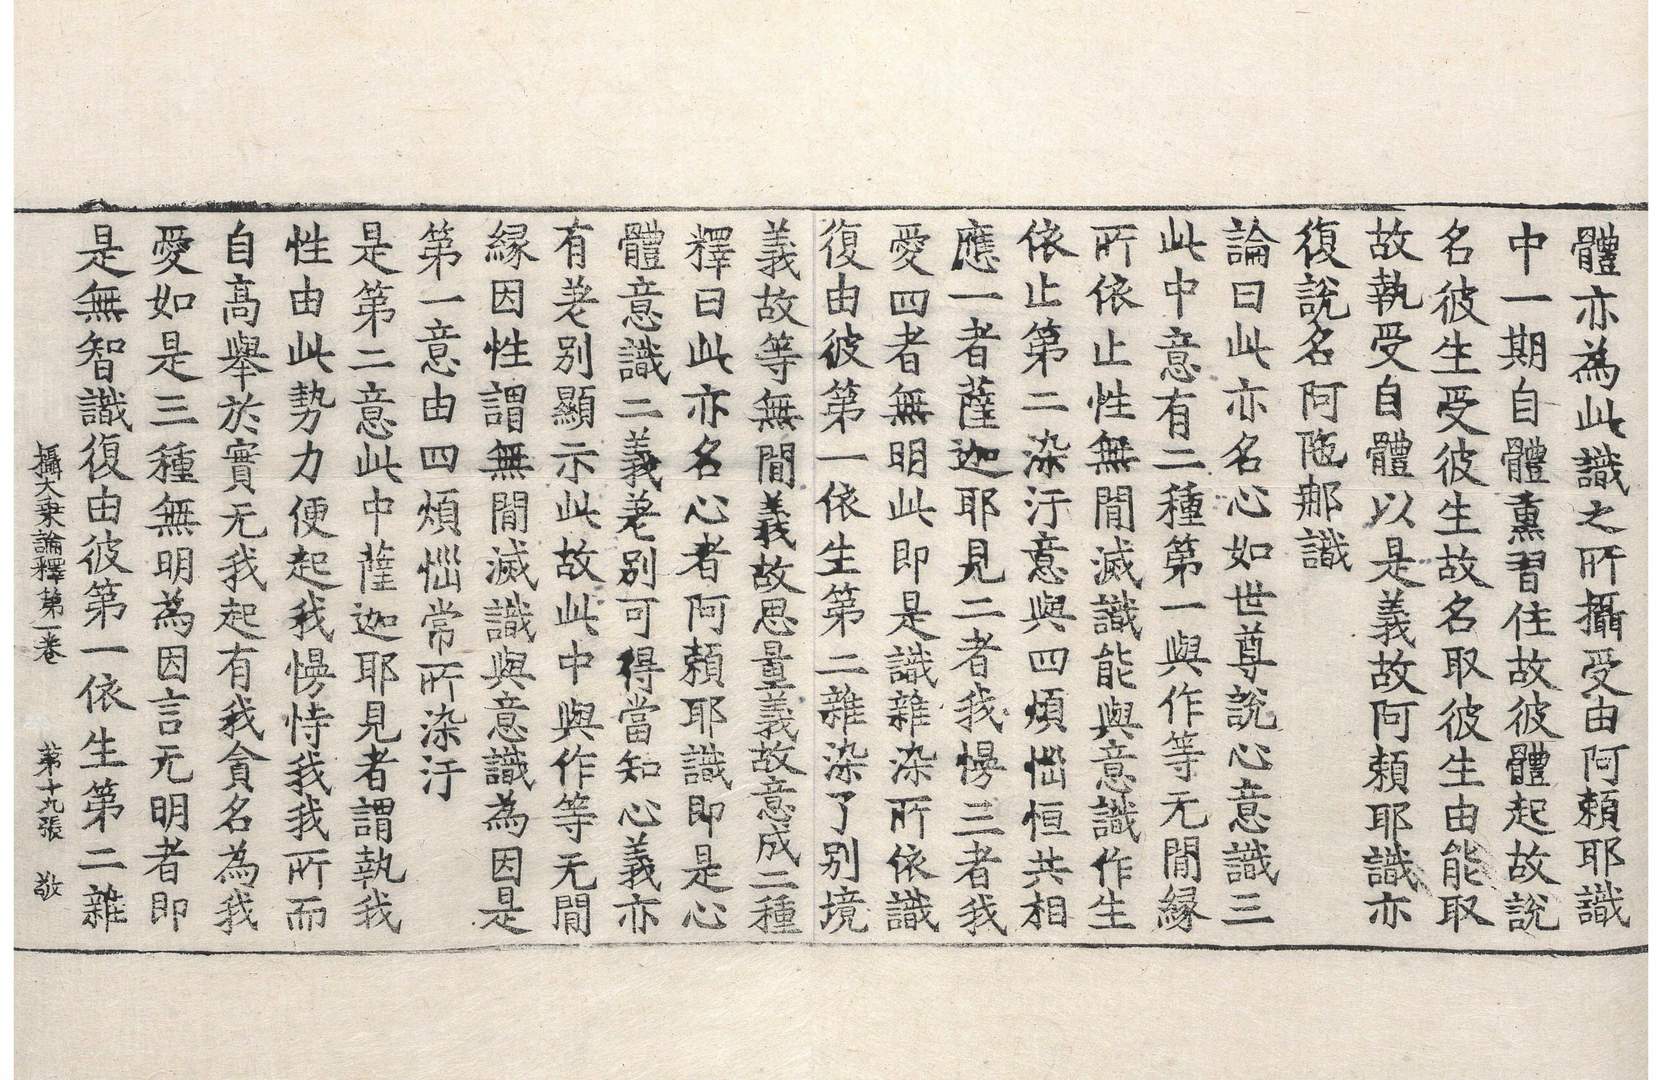 體亦為此識之所攝受由阿賴耶識
中一期自體熏習住故彼體起故說
名彼生受彼生故名取彼生由能取
故執受自體以是義故阿賴耶識亦
復說名阿陁那識
論曰此亦名心如世尊說心意識三
此中意有二種第一與作等无閒縁
所依止性無閒滅識能與意識作生
依止第二染汙意與四煩惱恒共相
應一者薩迦耶見二者我慢三者我
愛四者無明此即是識雜染所依識
復由彼第一依生第二雜染了别境
義故等無閒義故思量義故意成二種
釋曰此亦名心者阿賴耶識即是心
體意識二義差别可得當知心義亦
有差别顯示此故此中與作等无閒
縁因性謂無閒滅識與意識為因是
第一意由四煩惱常所染汙
是第二意此中薩迦耶見者謂執我
性由此勢力便起我慢恃我我所而
自高舉於實无我起有我貪名為我
愛如是三種無明為因言无明者即
是無智識復由彼第一依生第二雜
攝大乗論釋第一卷 第十九張 敬